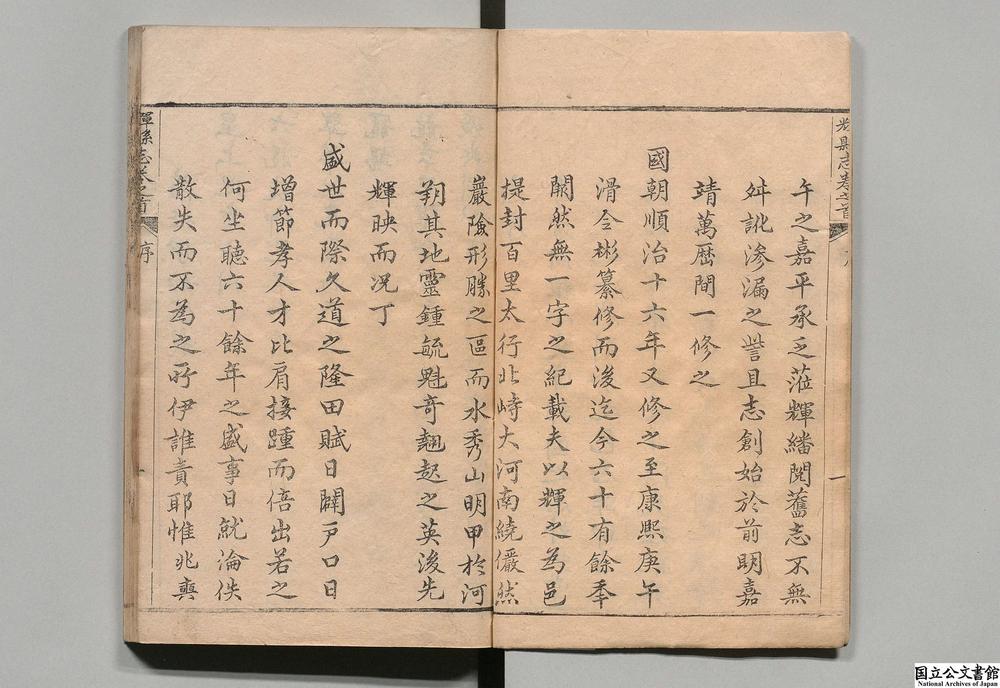 輝縣志卷之首
一
午之嘉平承乏蒞輝繙閱舊志不無
舛訛滲漏之訾且志創始於前明嘉
靖萬厯間一修之
國朝順治十六年又修之至康熙庚午
滑令彬纂修而後迄今六十有餘季
闕然無一字之紀載夫以輝之為邑
提封百里太行北峙大河南繞儼然
巖險形勝之區而水秀山明甲於河
朔其地靈鍾毓魁奇翹起之英後先
輝映而况丁
盛世而際久道之隆田賦日闢戶口日
增節孝人才比肩接踵而倍出若之
何坐聽六十餘年之盛事日就淪佚
散失而不為之所伊誰責耶惟兆𡘤
輝縣志卷之首
序
国立公文書館
National Archives of Japan